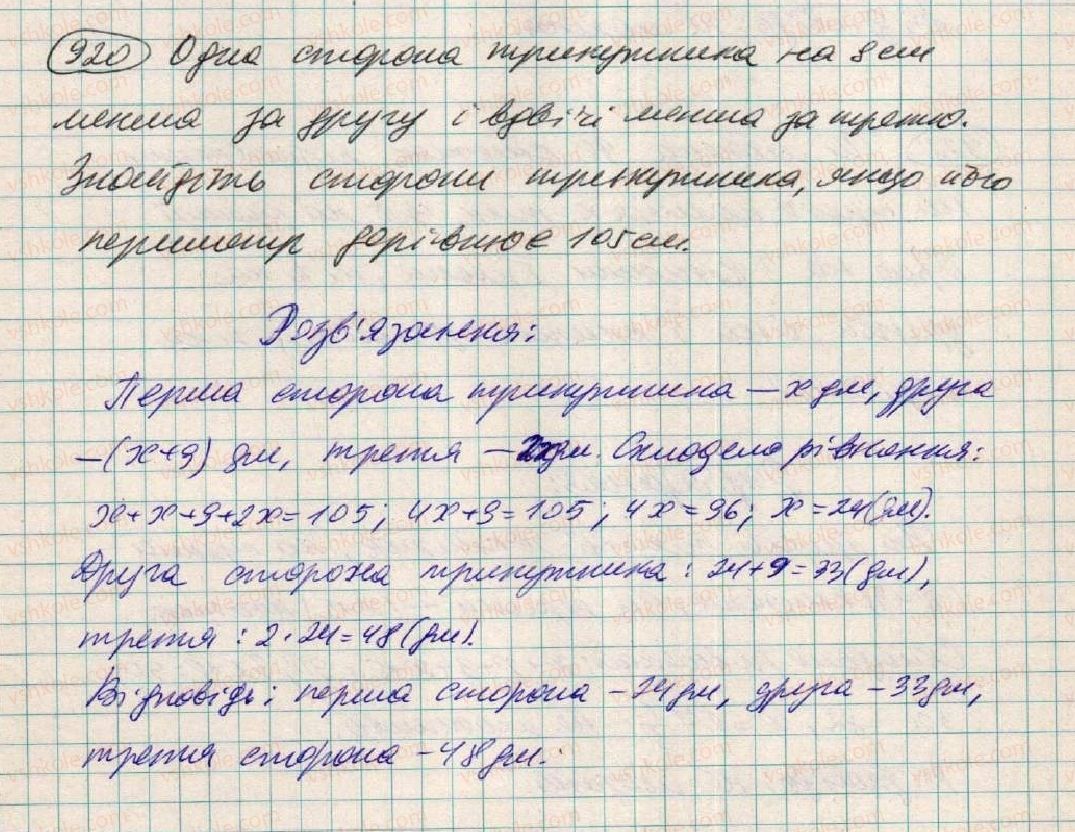 920 Одна сторона трикутника на 8 см
менша за другу і вдвічі менша за третю.
Знайдіть сторони трикутника, якщо його
периметр дорівнює 105 см.
Розв'язання:
Перша сторона трикутника – x дм, друга
– (x+9) дм, третя – 2x дм. Складемо рівняння:
x+x+9+2x=105; 4x+9=105; 4x=96; x=24(дм).
Друга сторона трикутника: 24+9=33(дм),
третя: 2·24=48(дм).
Відповідь: перша сторона – 24 дм, друга – 33 дм,
третя сторона – 48 дм.